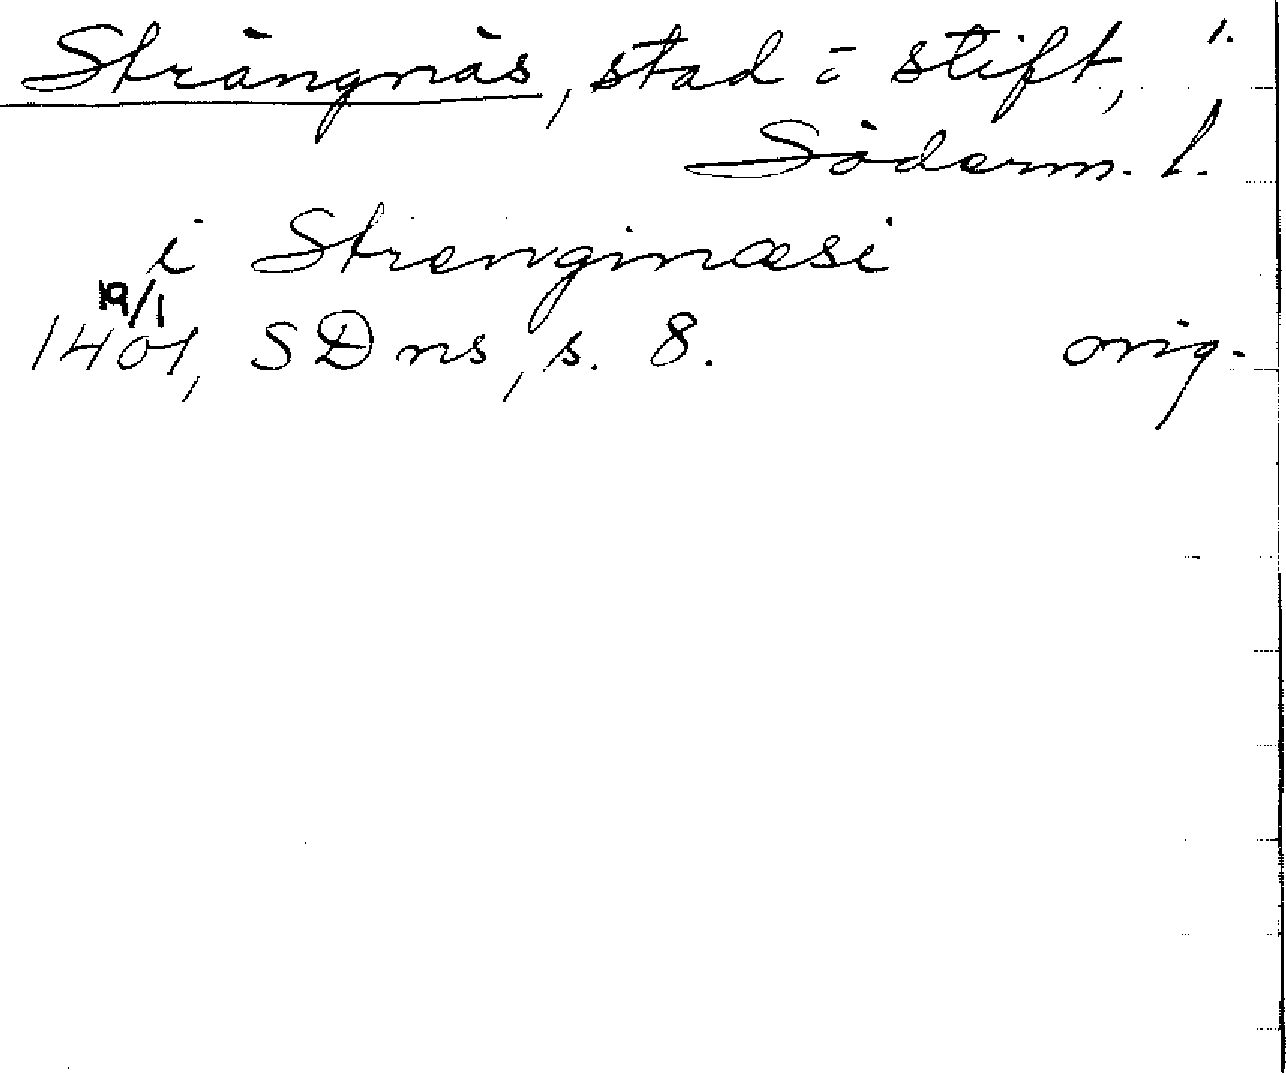 Strängnäs, stad o stift,
Söderm. l.
i Strenginæsi
19/1
1401, SDns, s. 8. orig.